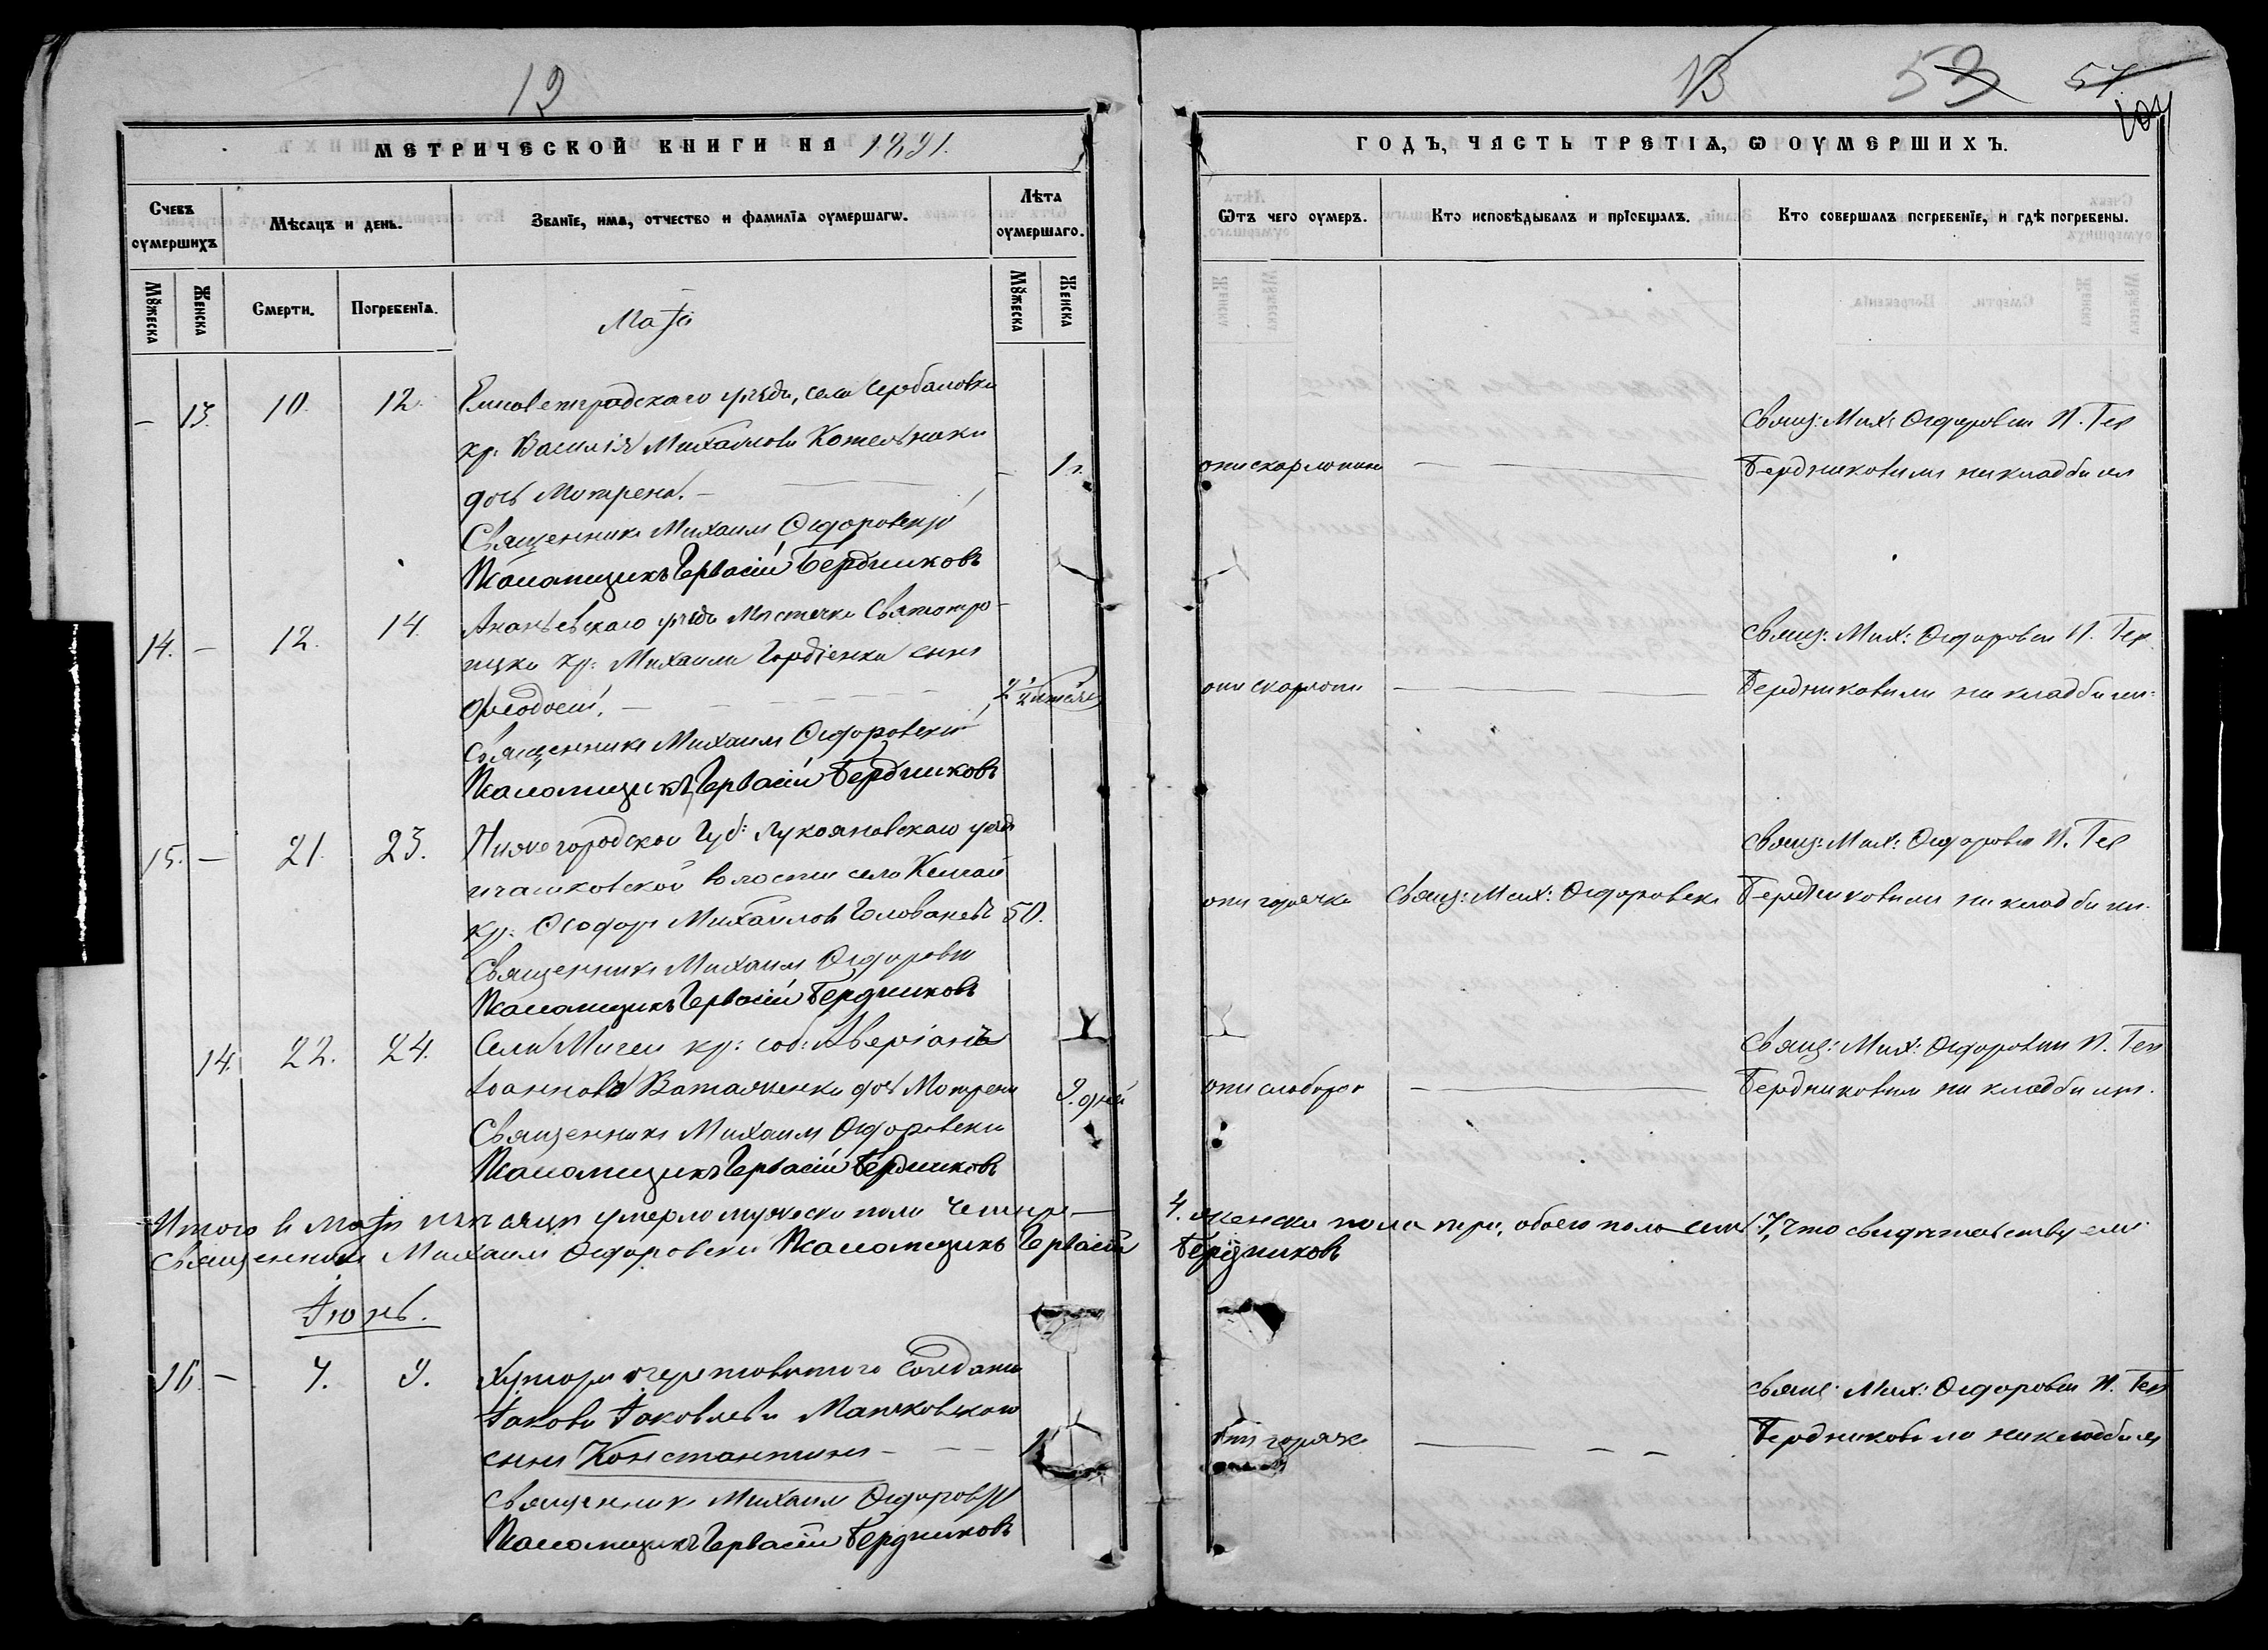 12
МЕТРИЧЕСКОЙ КНИГИ НА 1891.
Счевъ оумершихъ
Мѣсяцъ и день.
Званїе, имѧ, отчество и фамилїѧ оумершагѡ.
Лѣта оумершаго.
Мꙋжеска
Женска
Смерти.
Погребенїѧ.
Мꙋжеска
Женска
Май
– 13. 10. 12. Елисаветградскаго уѣзда, села Сербановки
кр. Василія Михайлова Котельника
дочь Мотрена. – 1 г.
Священникъ Михаилъ Ѳедоровскій
Псаломщикъ Гервасій Бердниковъ
14. – 12. 14. Ананьевскаго уѣзда Мѣстечка Святотро-
ицка кр: Михаила Гордіенка сынъ
Ѳеодосій. –
Священникъ Михаилъ Ѳедоровскій
Псаломщикъ Гервасій Бердниковъ
15. – 21. 23. Нижегородской Губ: Лукояновскаго уѣзда
волости села
кр: Ѳеодоръ Михайловъ Голованевъ 50.
Священникъ Михаилъ Ѳедоровск
Псаломщикъ Гервасій Бердниковъ
14. 22. 24. Села Мигеи кр: соб: Аверіана
Іоаннова Ваталженка дочь Мотрена 9. дней
Священникъ Михаилъ Ѳедоровскій
Псаломщикъ Гервасій Бердниковъ
Итого въ Маѣ мѣсяцѣ умерло мужеска пола четыре –
Священникъ Михаилъ Ѳедоровскій Псаломщикъ Гервасій
Іюнь.
16. – 7. 9. Хутора Очеретоватого Солдата
Іакова Іаковлева Мачковскаго
сынъ Константинъ – – – 1
Священникъ Михаилъ Ѳедоровскій
Псаломщикъ Гервасій Бердниковъ
13 53 54
104
ГОДЪ, ЧАСТЬ ТРЕТІѦ, Ѡ ОУМЕРШИХЪ.
Ѿтъ чего оумеръ.
Кто исповѣдывалъ и прїобщалъ.
Кто совершалъ погребенїе, и гдѣ погребены.
Свящ: Мих: Ѳедоровск П. Гер
отъ скарлатины – Бердниковымъ на кладбищѣ
Свящ: Мих: Ѳедоровск П. Гер.
отъ скарлати – Бердниковымъ на кладбищѣ.
Свящ: Мих: Ѳедоровск П. Гер
отъ горячки Свящ: Мих: Ѳедоровск Бердниковымъ на кладбищѣ.
Свящ: Мих: Ѳедоровск П. Гер
отъ слабости – Бердниковымъ на кладбищѣ.
4. женска пола три, обоего пола семь 7, что свидѣтельствуемъ.
Бердниковъ
Свящ: Мих: Ѳедоровск П. Гер
отъ горячк – – – Бердниковымъ на кладбищѣ